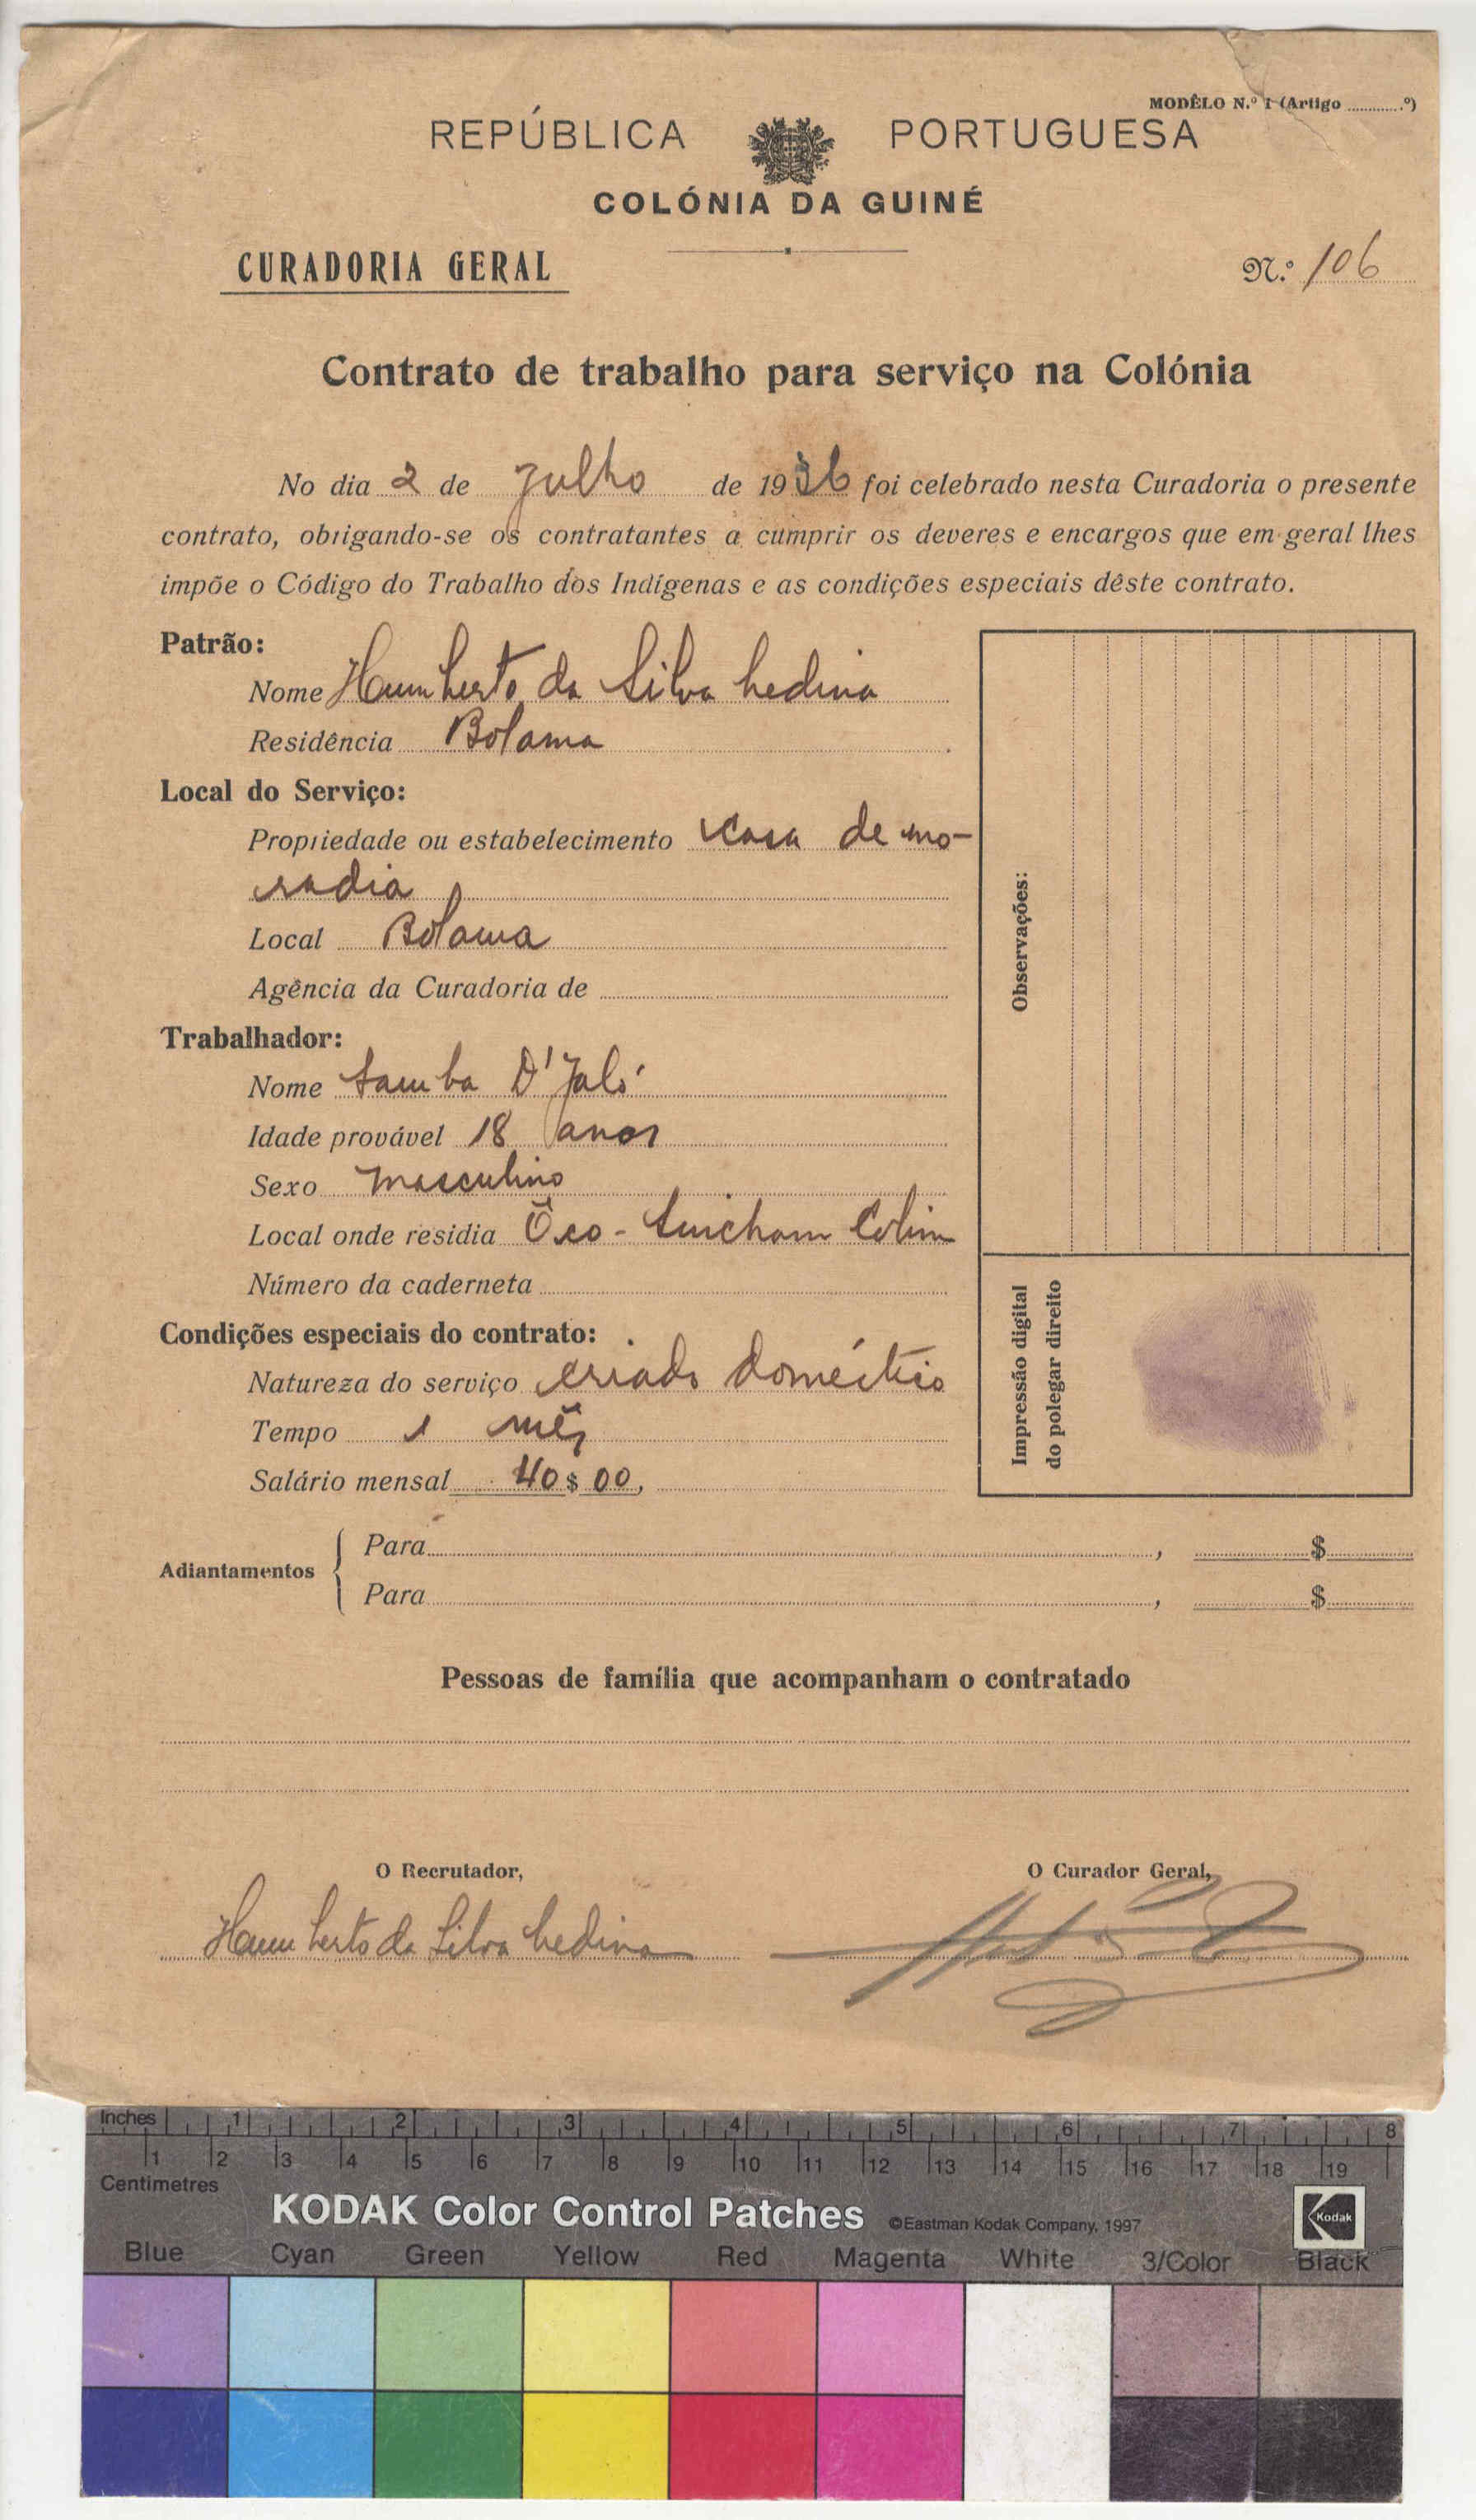 MODÊLO N.º 1 (Artigo ............º)
REPÚBLICA PORTUGUESA
COLÓNIA DA GUINÉ
CURADORIA GERAL
N.º 106
Contrato de trabalho para serviço na Colónia
No dia 2 de Julho de 1936 foi celebrado nesta Curadoria o presente
contrato, obrigando-se os contratantes a cumprir os deveres e encargos que em geral lhes
impõe o Código do Trabalho dos Indígenas e as condições especiais dêste contrato.
Patrão:
Nome Humberto da Silva Ledina
Residência Bolama
Local do Serviço:
Propriedade ou estabelecimento Casa de mo-
radia
Local Bolama
Agência da Curadoria de
Trabalhador:
Nome Samba D'Jaló
Idade provável 18 anos
Sexo masculino
Local onde residia Colim
Número da caderneta
Condições especiais do contrato:
Natureza do serviço criado doméstico
Tempo 1 mês
Salário mensal 40$00,
Observações:
Impressão digital
do polegar direito
Adiantamentos
Para , $
Para , $
Pessoas de família que acompanham o contratado
O Recrutador,
O Curador Geral,
Humberto da Silva Ledina
Inches 1 2 3 4 5 6 7 8
1 2 3 4 5 6 7 8 9 10 11 12 13 14 15 16 17 18 19
Centimetres
KODAK Color Control Patches ©Eastman Kodak Company, 1997
Kodak
Blue Cyan Green Yellow Red Magenta White 3/Color Black